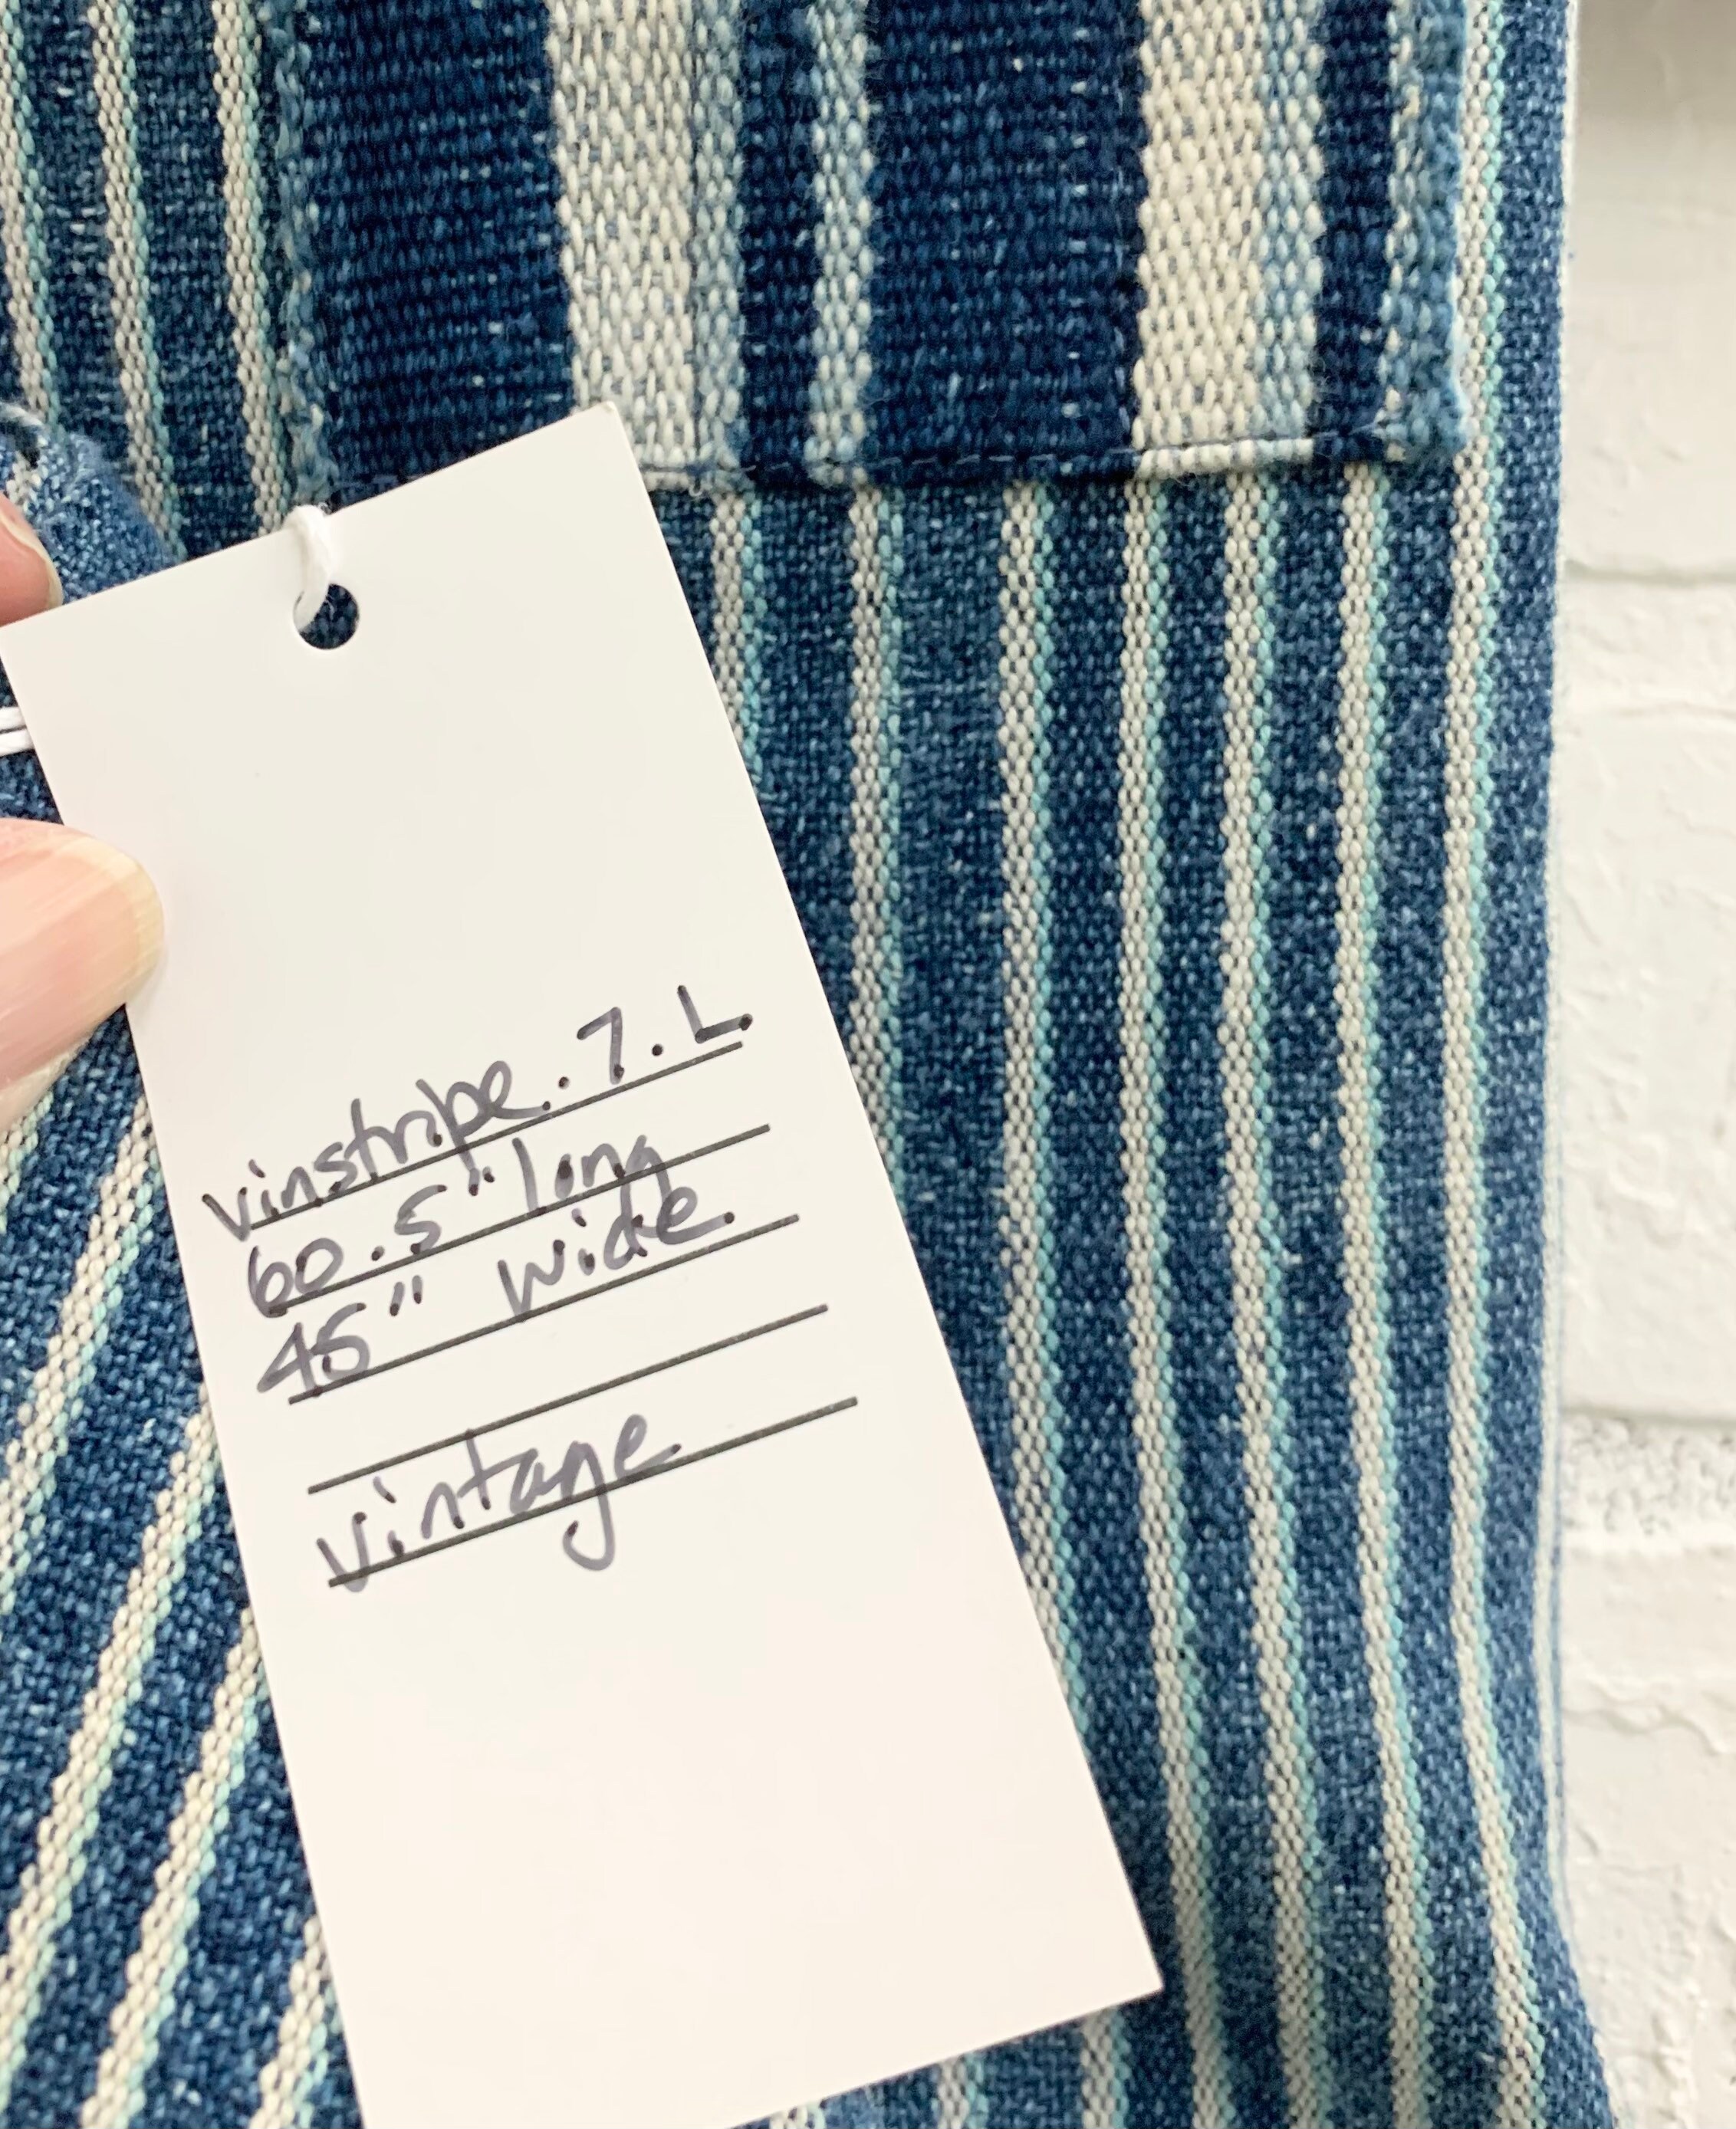 vinstripe.7.L.
60.5" long
45" wide.
vintage